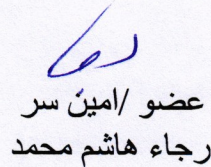 عضو /امين سر
رجاء هاشم محمد